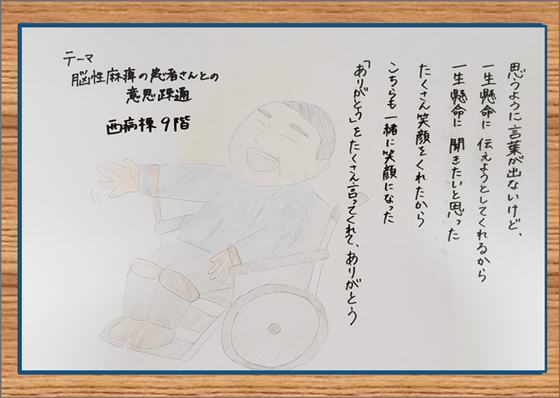 テーマ
脳性麻痺の患者さんとの
意思疎通
西病棟9階
思うように言葉が出ないけど、
一生懸命に 伝えようとしてくれるから
一生懸命に 聞きたいと思った
たくさん笑顔をくれたから
こちらも一緒に笑顔になった
「ありがとう」をたくさん言ってくれて、ありがとう